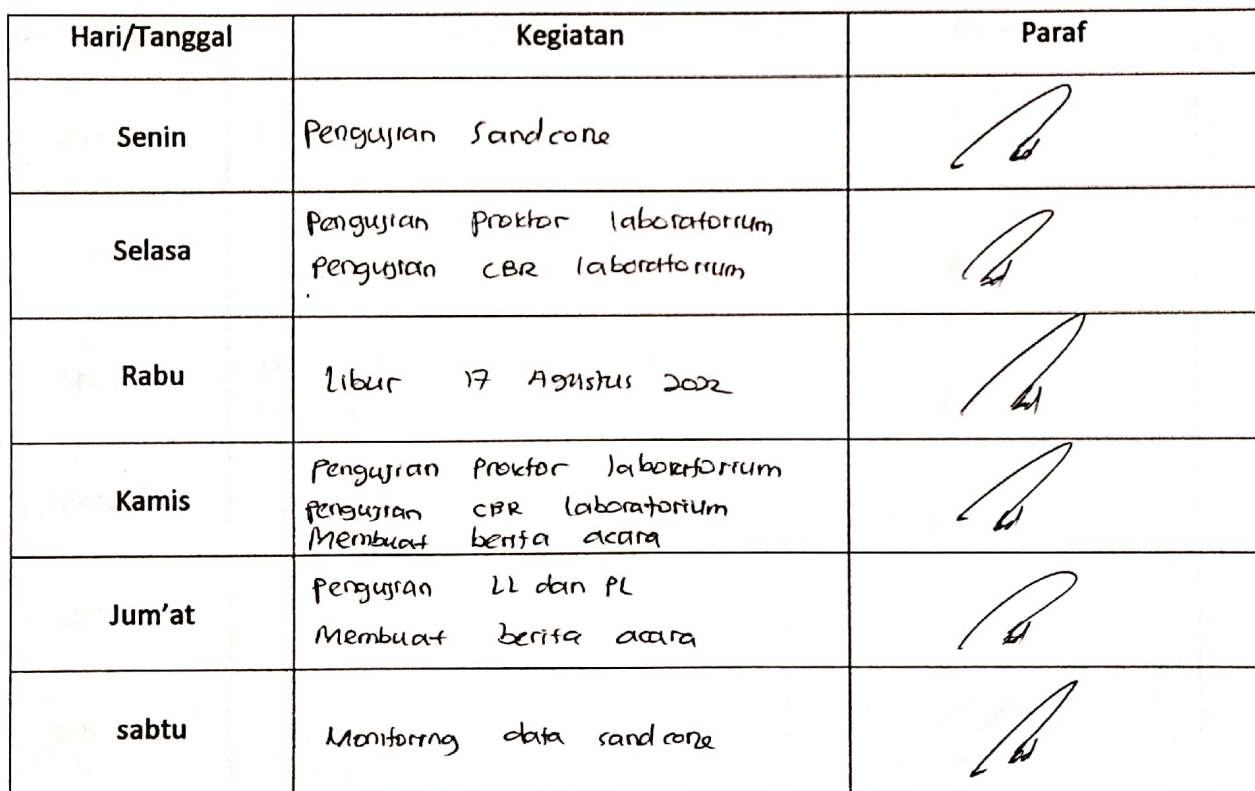 Hari/Tanggal Kegiatan Paraf
Senin Pengujian Sandcone
Selasa Pengujian Proktor laboratorium
Pengujian CBR laboratorium
Rabu Libur 17 Agustus 2022
Kamis Pengujian Proktor laboratorium
Pengujian CBR laboratorium
Membuat berita acara
Jum'at Pengujian LL dan PL
Membuat berita acara
sabtu Monitoring data sand cone